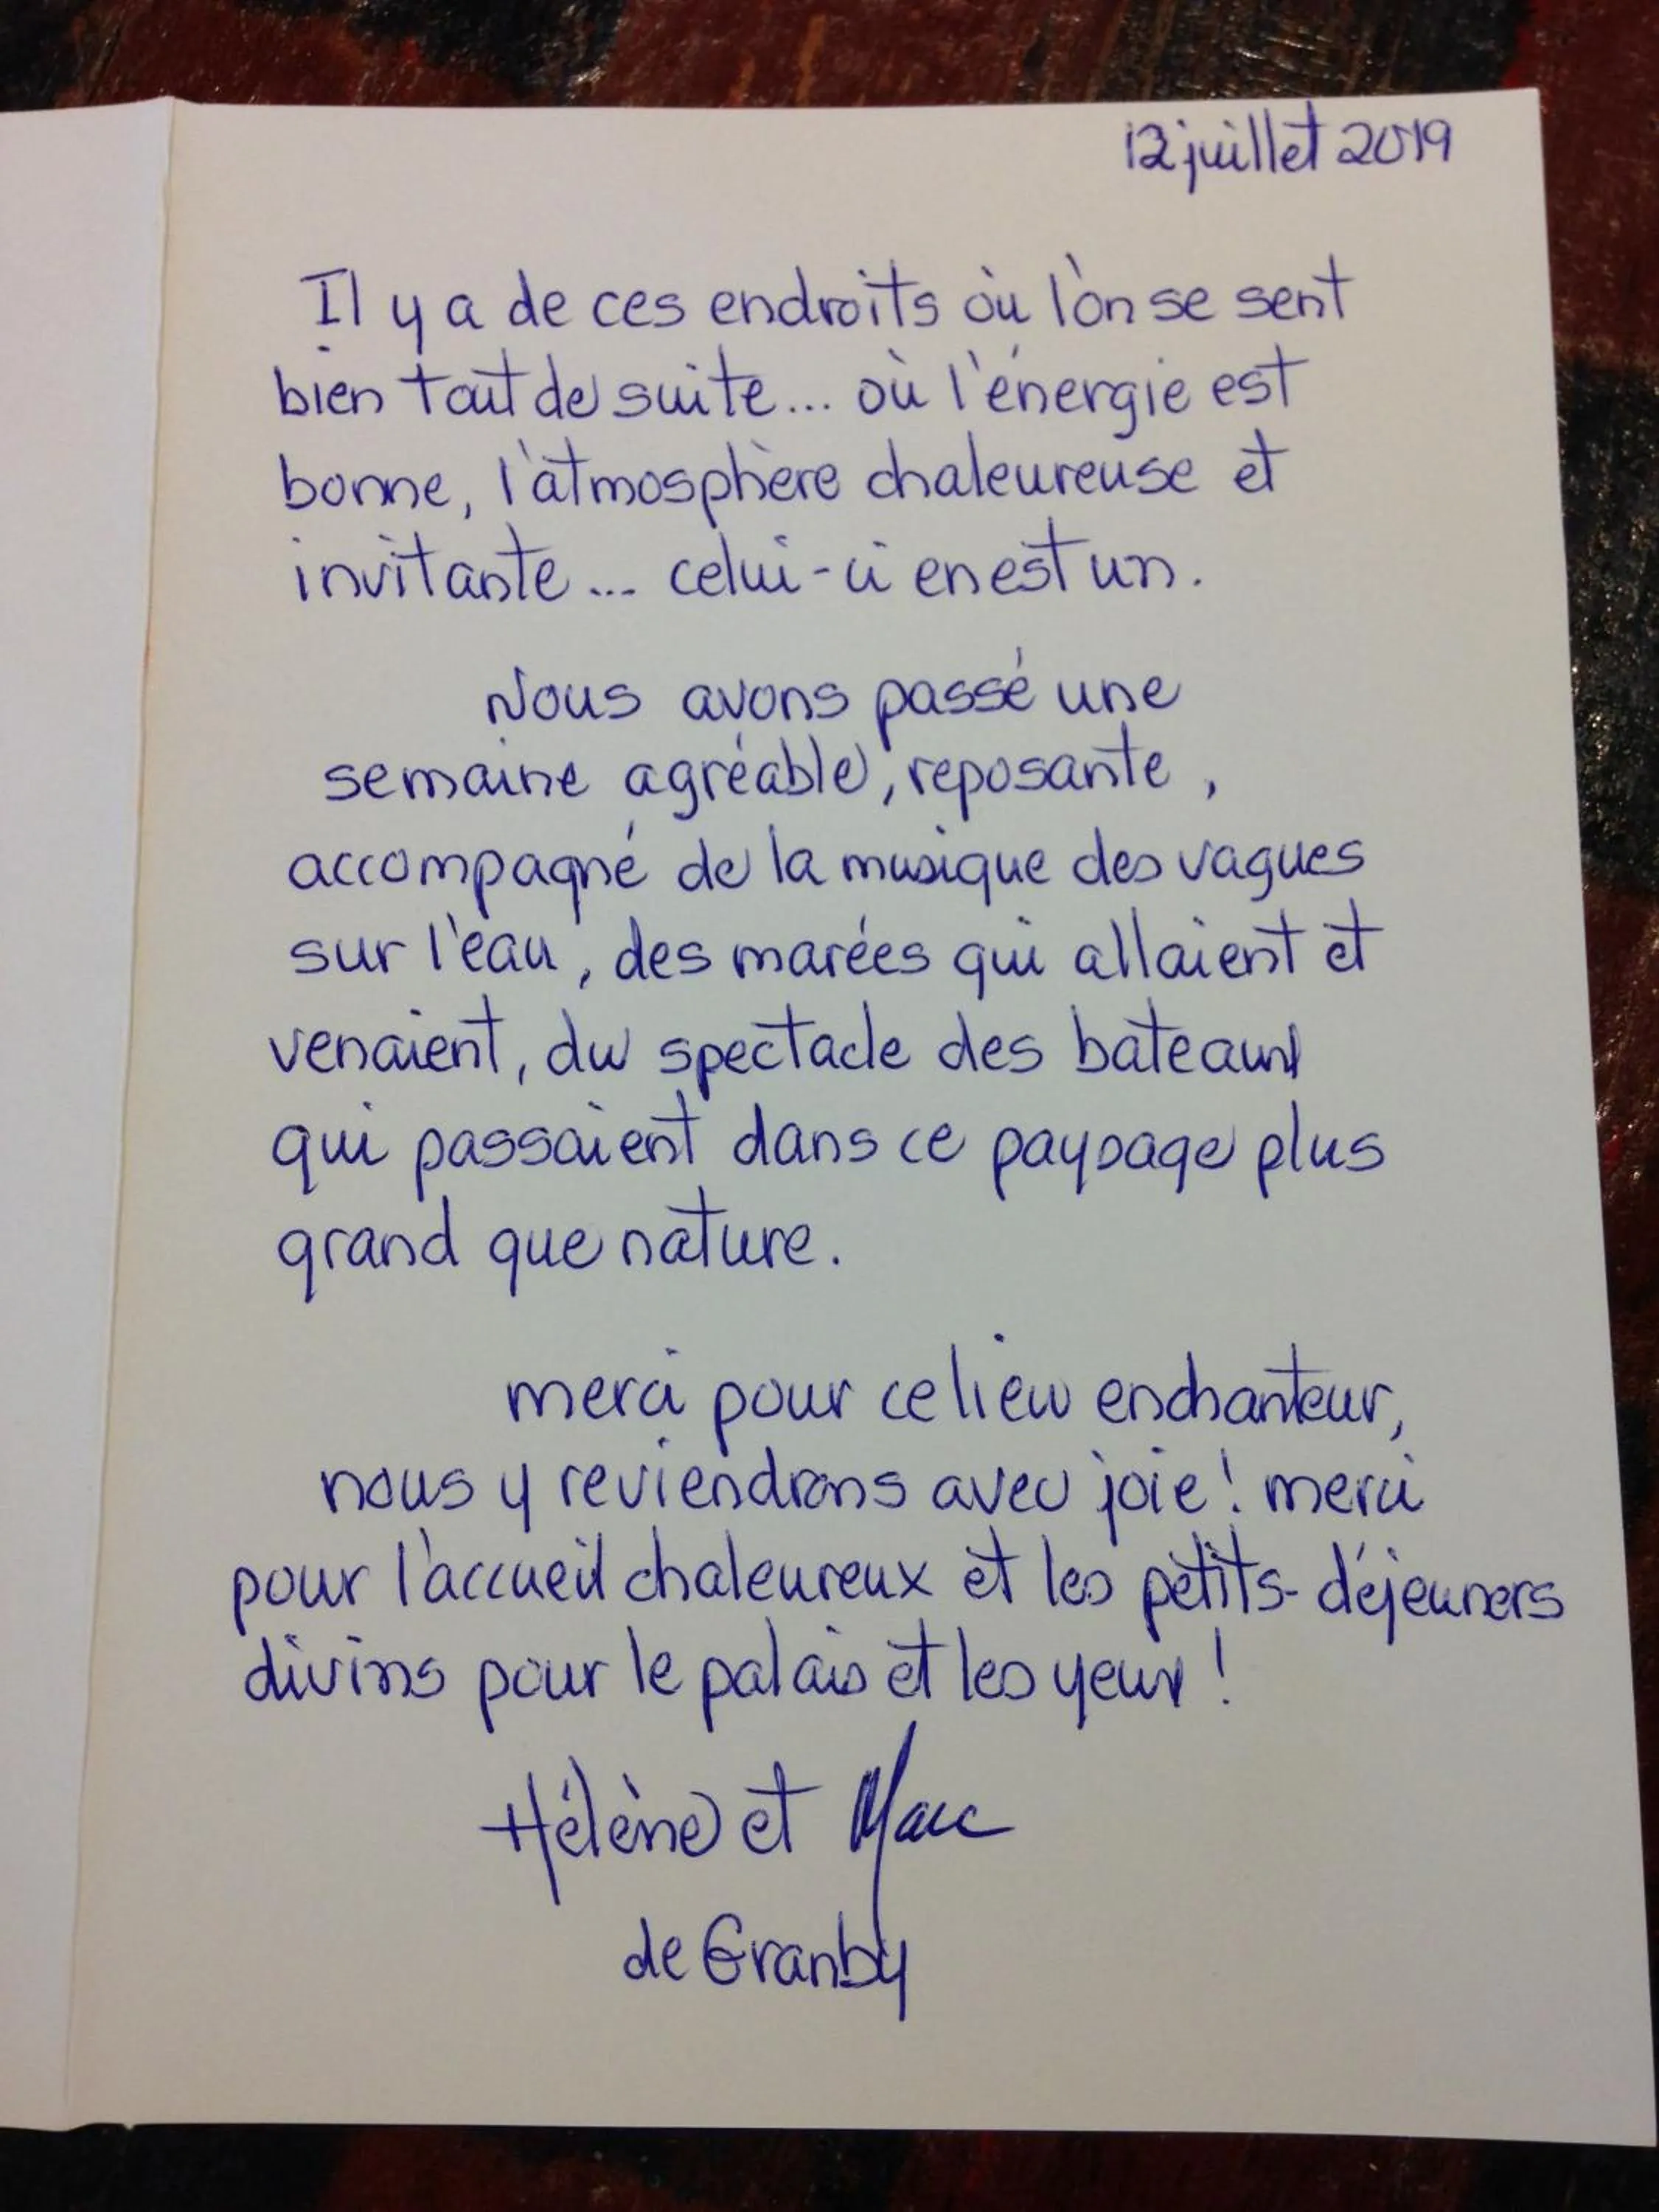 12 juillet 2019
Il y a de ces endroits où l'on se sent
bien tout de suite... où l'énergie est
bonne, l'atmosphère chaleureuse et
invitante... celui-ci en est un.
Nous avons passé une
semaine agréable, reposante,
accompagné de la musique des vagues
sur l'eau, des marées qui allaient et
venaient, du spectacle des bateaux
qui passaient dans ce paysage plus
grand que nature.
merci pour ce lieu enchanteur,
nous y reviendrons avec joie! merci
pour l'accueil chaleureux et les petits-déjeuners
divins pour le palais et les yeux!
Hélène et Marc
de Granby